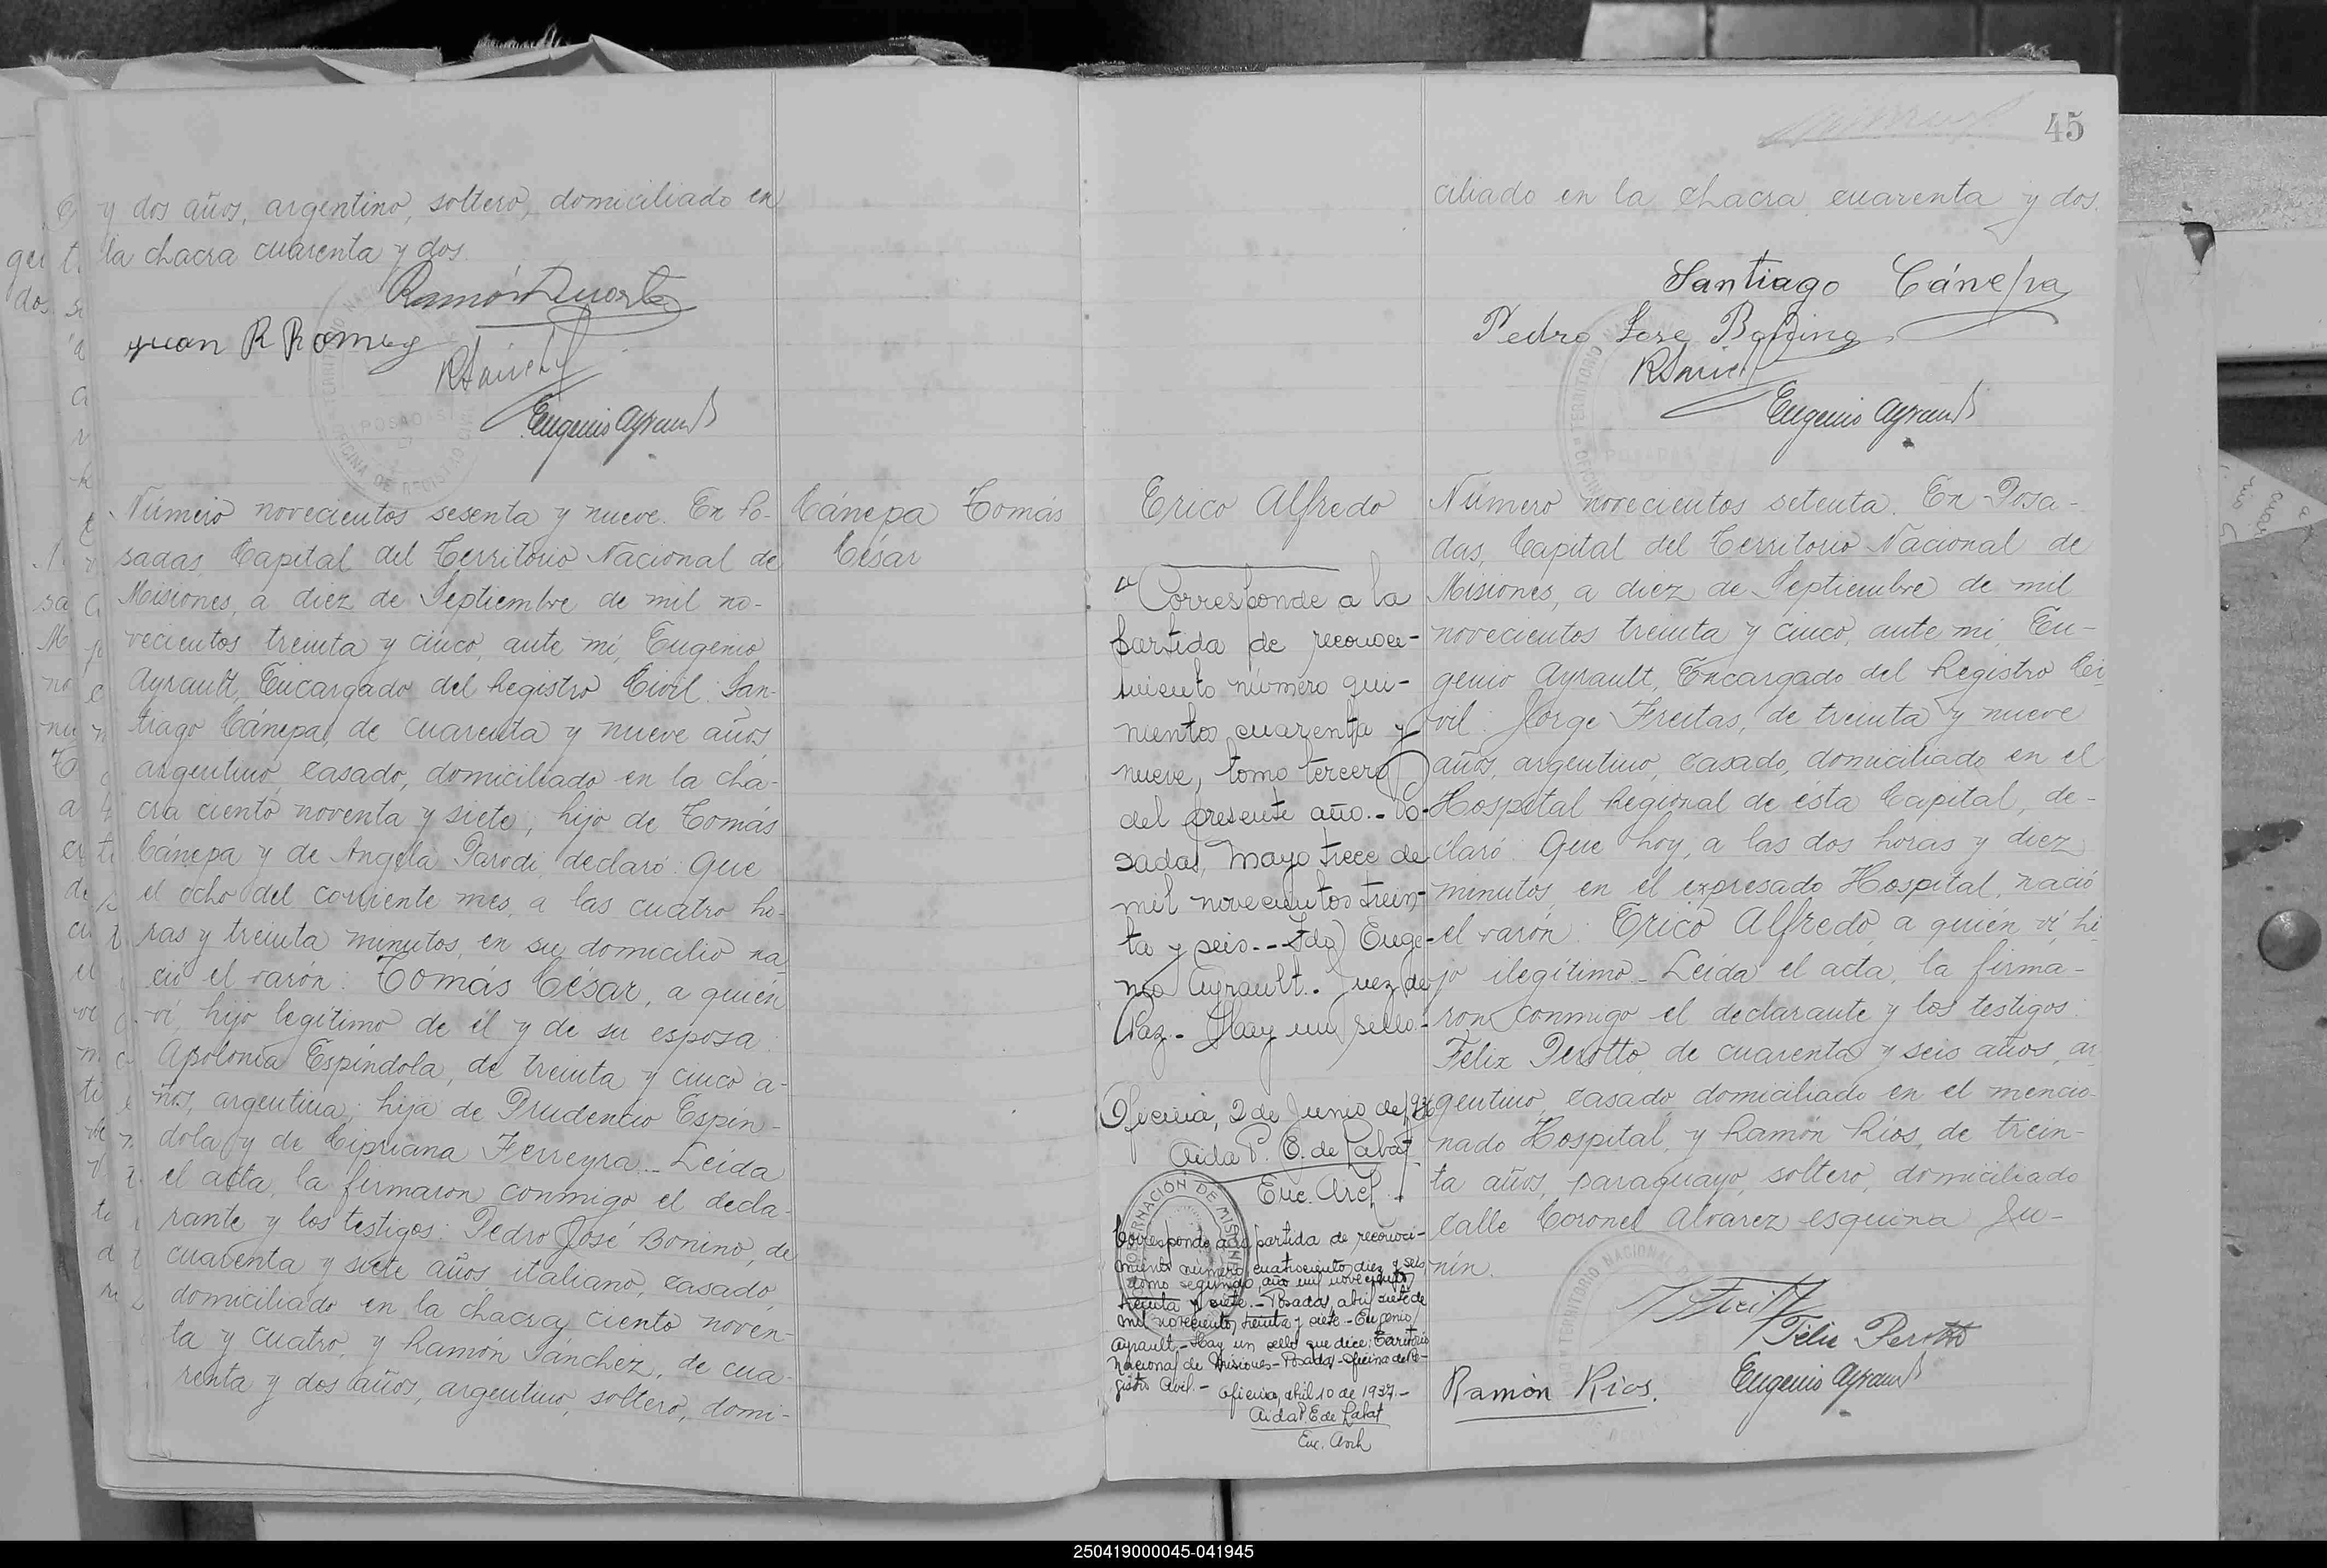 y dos años, argentino, soltero, domiciliado en
la chacra cuarenta y dos.
Ramón Duarte
Juan R Romey
RSánchez
Eugenio Ayrault
Número novecientos sesenta y nueve. En Po-
sadas, Capital del Territorio Nacional de
Misiones, a diez de Septiembre de mil no-
vecientos treinta y cinco, ante mí, Eugenio
Ayrault, Encargado del Registro Civil: San-
tiago Cánepa, de cuarenta y nueve años
argentino, casado, domiciliado en la cha-
cra ciento noventa y siete, hijo de Tomás
Cánepa y de Angela Parodi, declaró: Que
el ocho del corriente mes, a las cuatro ho-
ras y treinta minutos, en su domicilio na-
ció el varón: Tomás César, a quién
ví, hijo legítimo de él y de su esposa
Apolonia Espíndola, de treinta y cinco a-
ños, argentina, hija de Prudencio Espín-
dola y de Cipriana Ferreyra.- Leída
el acta, la firmaron conmigo el decla-
rante y los testigos: Pedro José Bonino, de
cuarenta y siete años, italiano, casado,
domiciliado en la chacra ciento noven-
ta y cuatro, y Ramón Sánchez, de cua-
renta y dos años, argentino, soltero, domi-
Cánepa Tomás
César
45
ciliado en la chacra cuarenta y dos.
Santiago Cánepa
Pedro Jose Bonino
RSánchez
Eugenio Ayrault
Erico Alfredo
Corresponde a la
partida de reconoci-
miento número qui-
nientos cuarenta y
nueve, tomo tercero
del presente año.- Po-
sadas, Mayo trece de
mil novecientos trein-
ta y seis.- Fdo) Euge-
nio Ayrault.- Juez de
Paz.- Hay un sello.-
Oficina, 2 de Junio de 936
Aida P. E. de Labat
Enc. Arch.
Corresponde a la partida de reconoci-
miento número cuatrocientos diez y seis
tomo segundo, año mil novecientos
treinta y siete.- Posadas, abril siete de
mil novecientos treinta y siete.- Eugenio
Ayrault.- Hay un sello que dice: Territorio
Nacional de Misiones - Posadas - Oficina de Re-
gistro Civil.- Oficina, abril 10 de 1937.-
Aida P. E. de Labat
Enc. Arch
Número novecientos setenta. En Posa-
das, Capital del Territorio Nacional de
Misiones, a diez de Septiembre de mil
novecientos treinta y cinco, ante mí, Eu-
genio Ayrault, Encargado del Registro Ci-
vil: Jorge Freitas, de treinta y nueve
años, argentino, casado, domiciliado en el
Hospital Regional de ésta Capital, de-
claró: Que hoy, a las dos horas y diez
minutos, en el expresado Hospital, nació
el varón: Erico Alfredo, a quién ví, hi-
jo ilegítimo.- Leída el acta, la firma-
ron conmigo el declarante y los testigos:
Félix Perotto, de cuarenta y seis años, ar-
gentino, casado, domiciliado en el mencio-
nado Hospital, y Ramón Ríos, de trein-
ta años, paraguayo, soltero, domiciliado
calle Coronel Alvarez esquina Ju-
nín.
Félix Perotto
Ramón Ríos.
Eugenio Ayrault
250419000045-041945